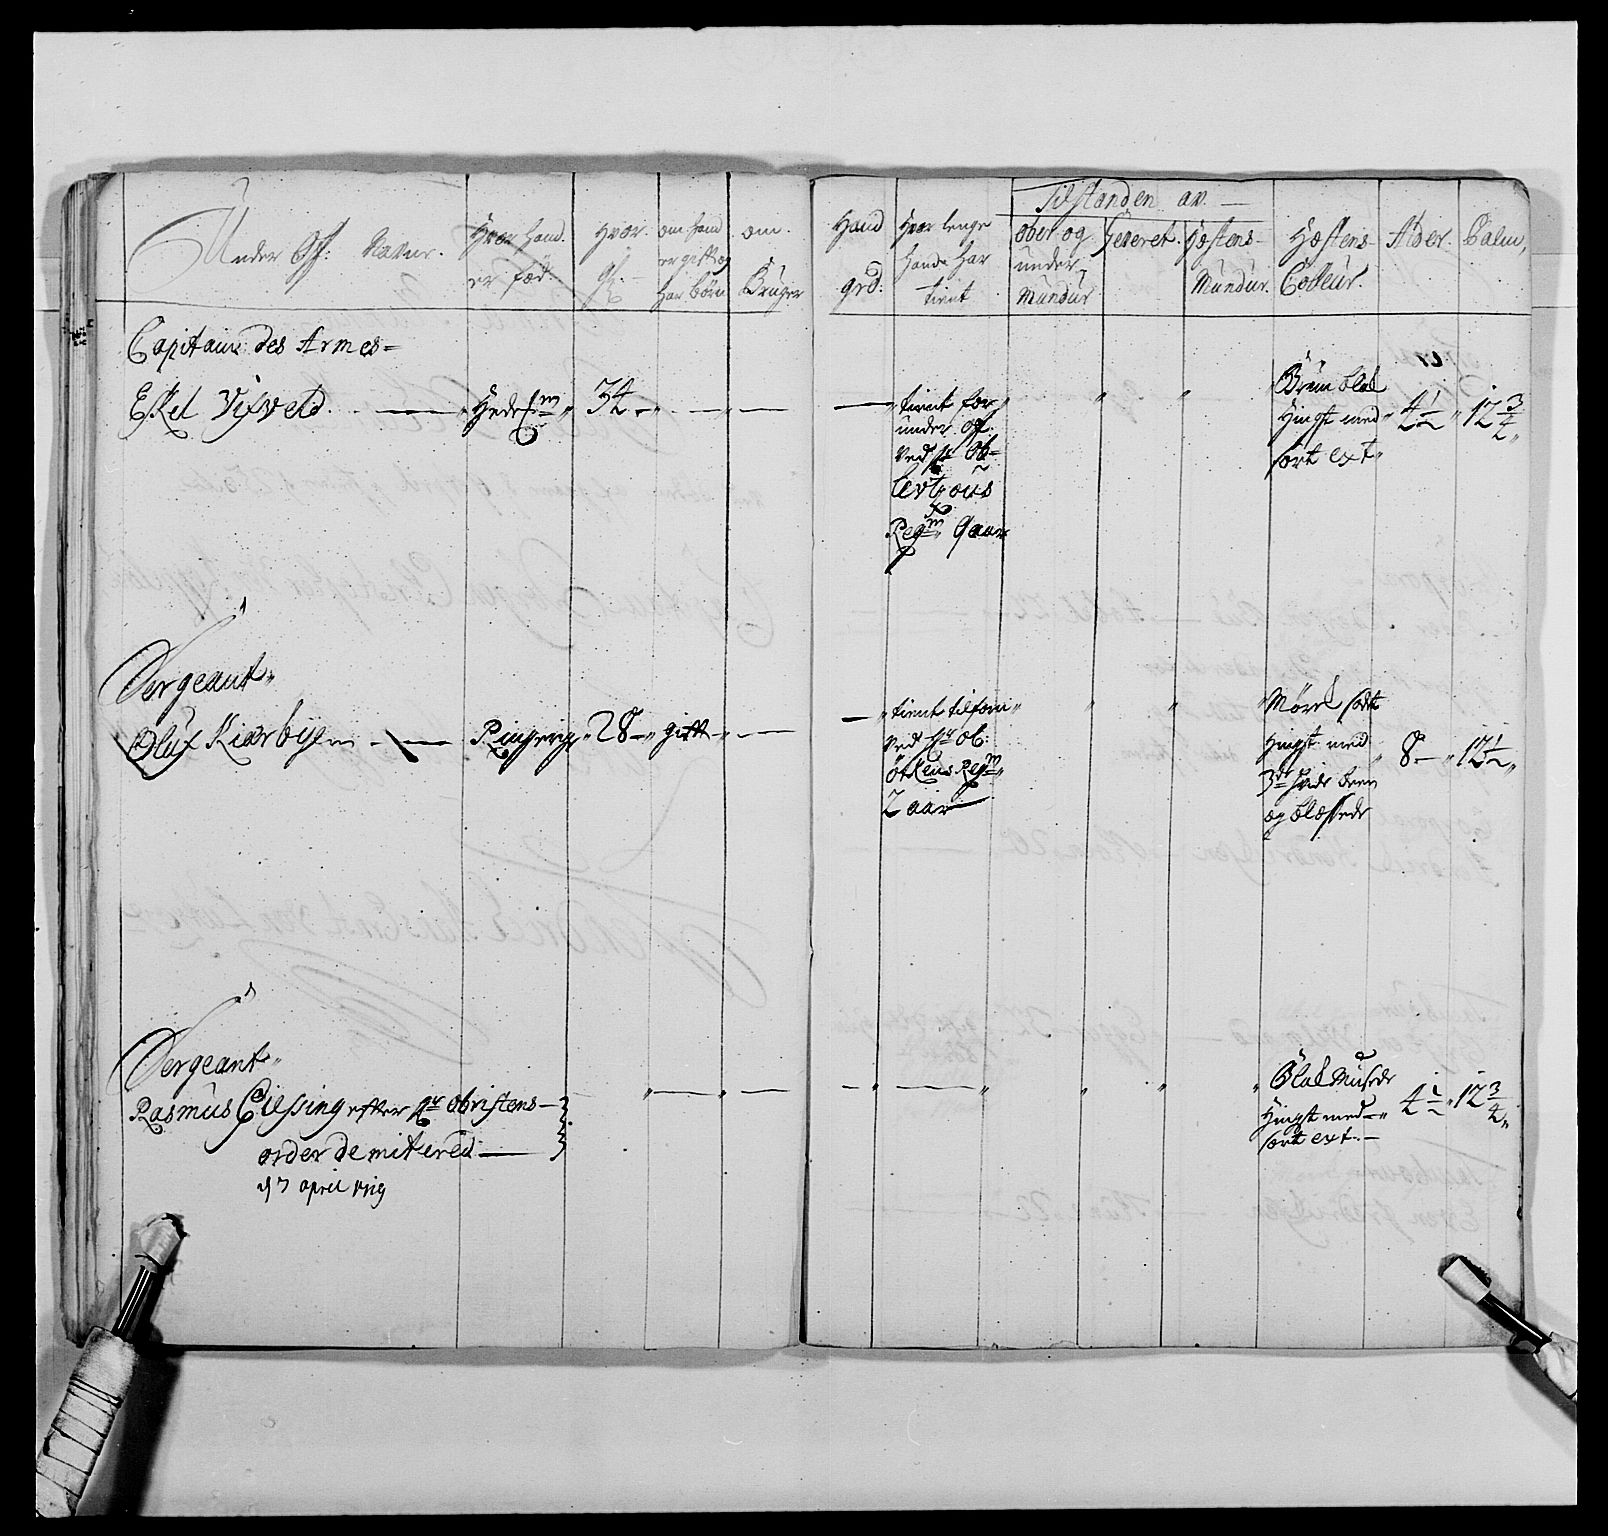 Under Off: Nafur.
Hvor Hand er fød.
Hvor gl.
om hand er gift og har børn
om Bruger
Hand grd.
Hvor lenge Hande Har tient
Tilstanden av.
ober og under Mundur
geveret.
Hæstens Mundur.
Hæstens Colleur.
Alder.
Palm,
Capitain des Armes
Ekel
Hedem
34
tient for
under Off.
ved Hr Ob
Regm 9 aar
Brun blak
Hingst med
sort ext
4 1/2
12 3/4
Sergeant
Oluf Kierbye
Ringerig
28
gift
tient tilforn
ved Hr Ob:
Regm
2 aar
Mørk rødt
Hingst med
3de hvide been
og blessede
8
12 1/2
Sergeant
Rasmus Giessing efter Hr Obristens
order demitered
d 7 april 1719
Blak Musede
Hingst med
sort ext.
4 1/2
12 3/4